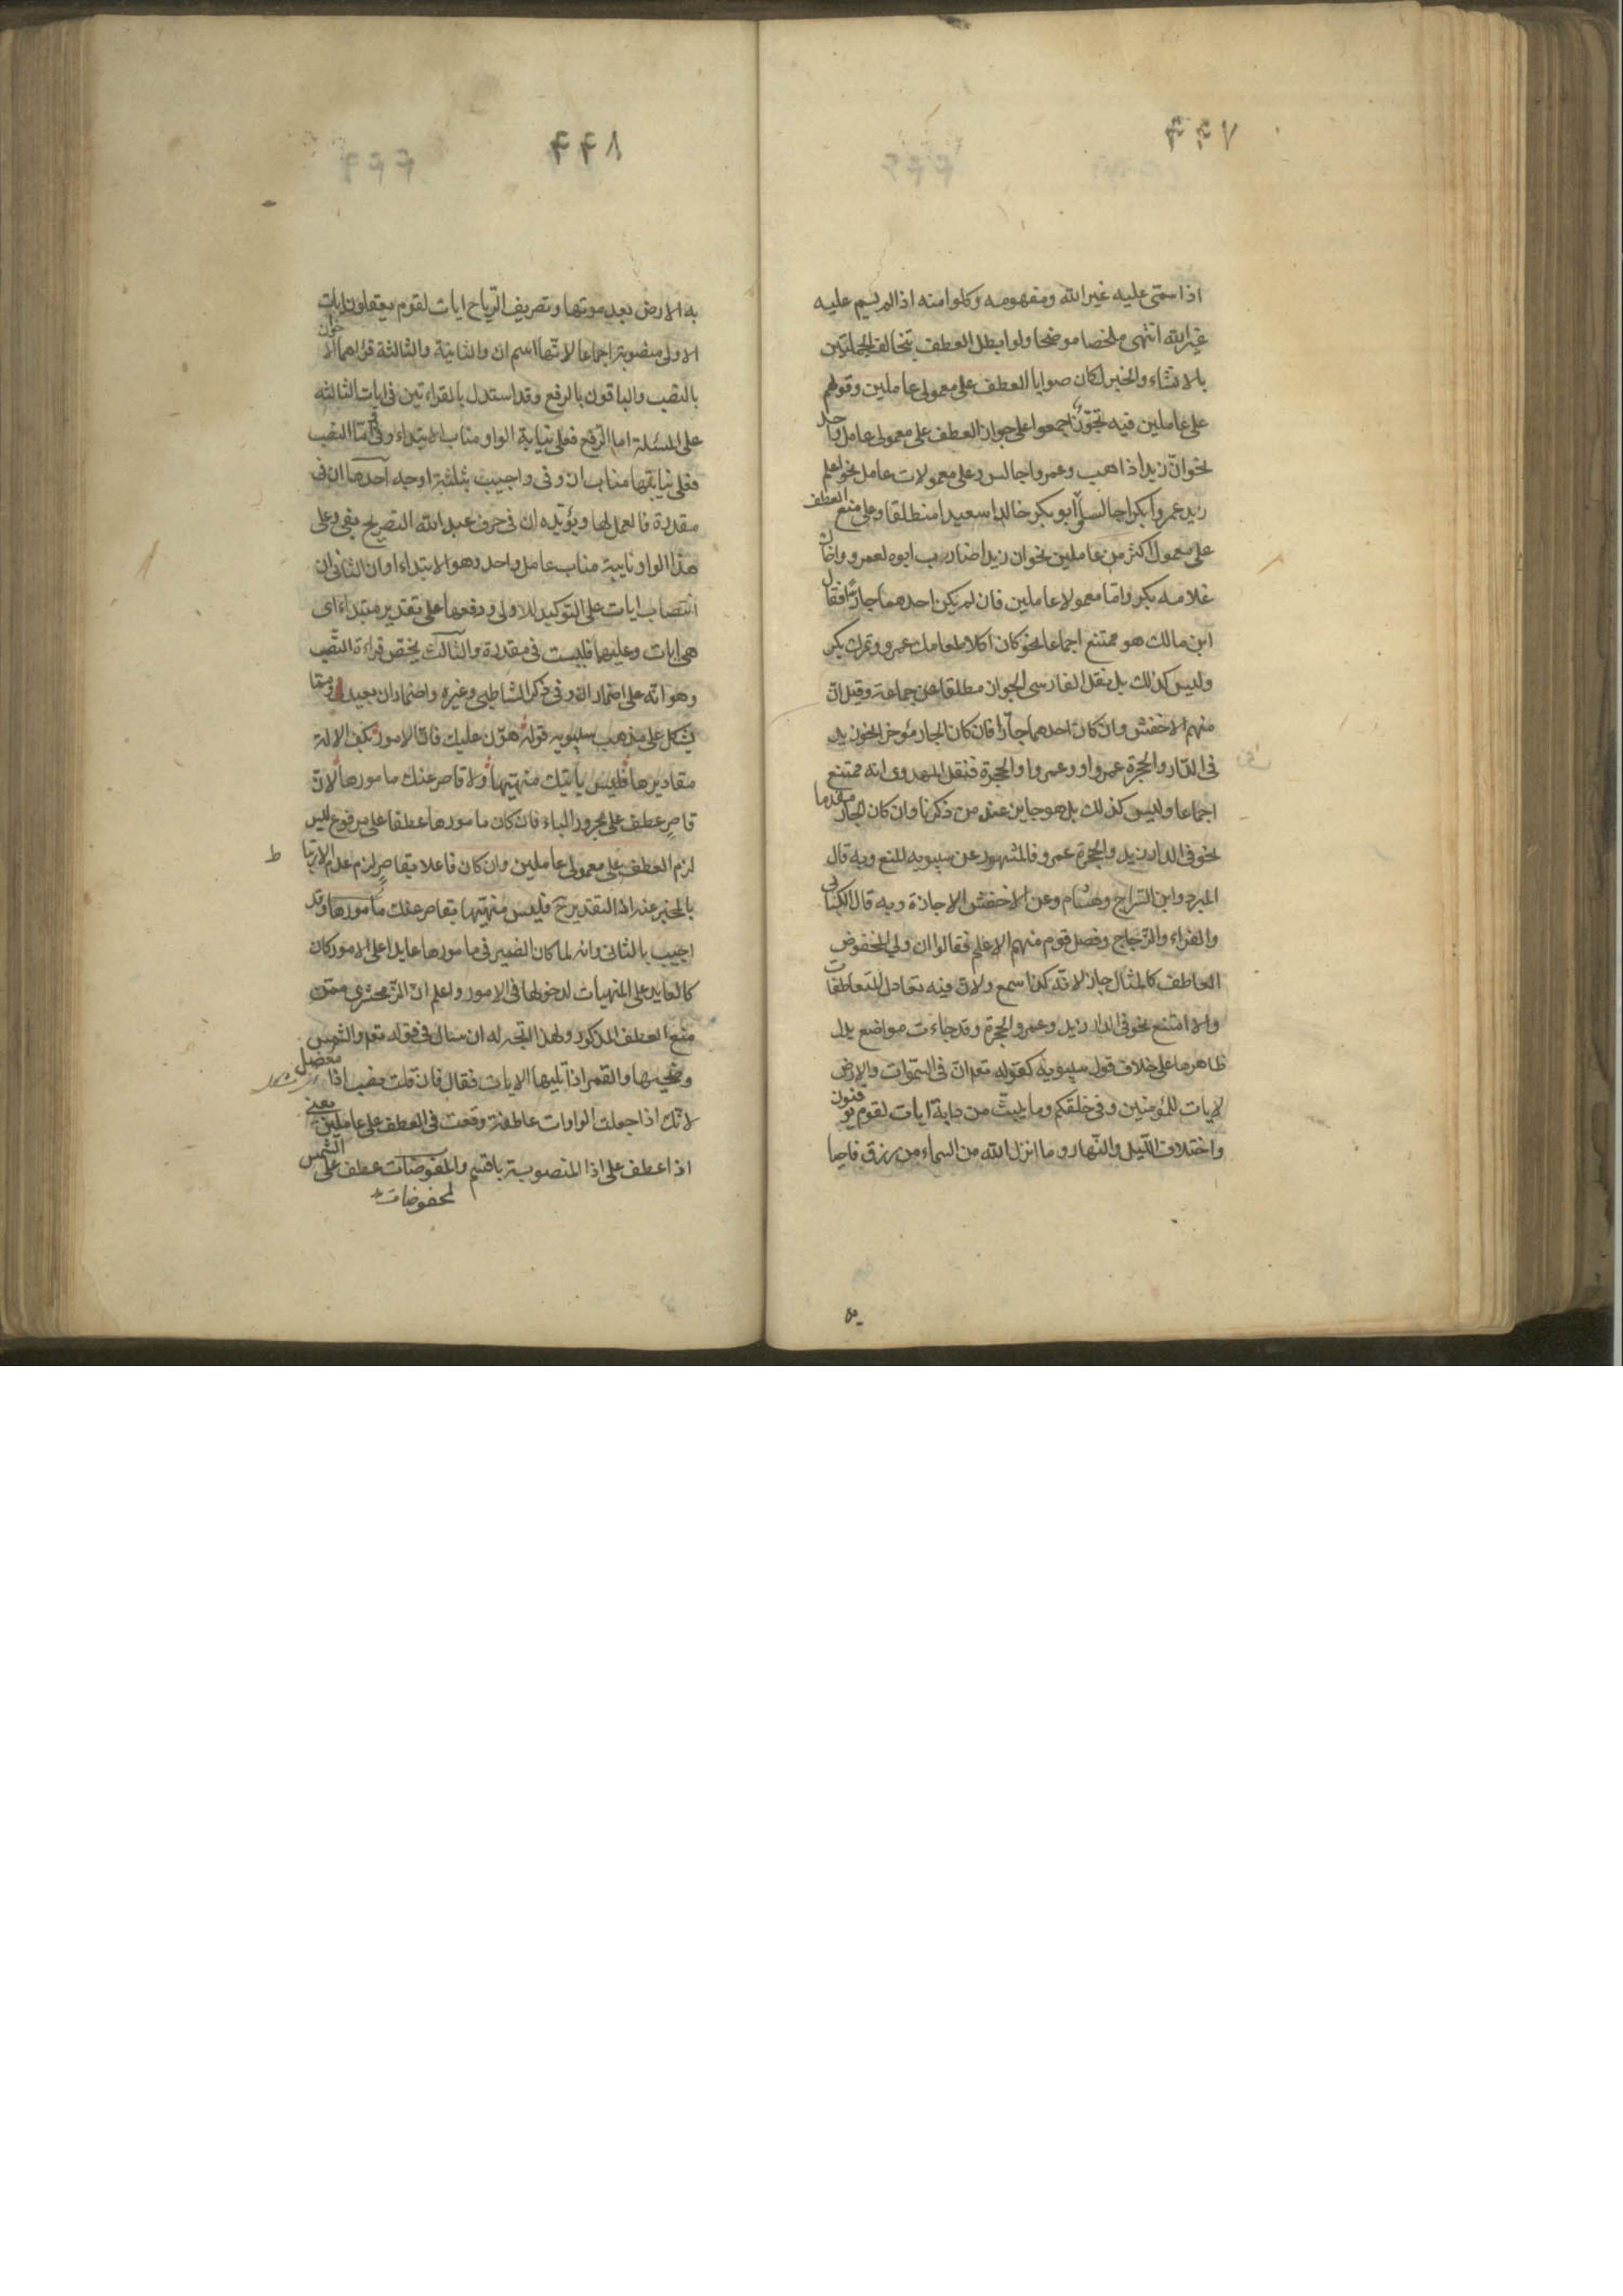 ٤٤٧
اذا سمّى عليه غير الله ومفهومه وكلوا منه اذا لم يسم عليه
غير الله انتهى ملخصا موضحا ولو ابطل العطف بتخالف الجملتين
بالانشاء والخبر لكان صوابا العطف على معمولى عاملين وقولهم
على عاملين فيه تجوّز اجمعوا على جواز العطف على معمولى عامل واحد
نحو انّ زيدا ذاهب وعمروا جالس وعلى معمولات عامل نحو اعلم
زيد عمروا بكرا جالسا وأبو بكر خالدا سعيدا منطلقا وعلى منع العطف
على معمول اكثر من عاملين نحو ان زيدا ضارب ابوه لعمرو واخاك
غلامه بكر وامّا معمولا عاملين فان لم يكن احدهما جارّا فقال
ابن مالك هو ممتنع اجماعا نحو كان آكلا طعامك عمرو وتمرك بكر
وليس كذلك بل نقل الفارسى الجواز مطلقا عن جماعة وقيل انّ
منهم الاخفش وان كان احدهما جارّا فان كان الجار مؤخرا نحو زيد
فى الدّار والحجرة عمرو او وعمرو او الحجرة فنقل المهدوى انه ممتنع
اجماعا وليس كذلك بل هو جايز عند من ذكرنا وان كان الجار مقدما
نحو فى الدار زيد والحجرة عمرو فالمشهور عن سيبويه المنع وبه قال
المبرد وابن السّراج وهشام وعن الاخفش الاجازة وبه قال الكسائى
والفراء والزّجاج وفصل قوم منهم الاعلم فقالوا ان ولى المخفوض
العاطف كالمثال جاز لانّه كذا سمع ولانّ فيه تعادل المتعاطفات
والا امتنع نحو فى الدار زيد وعمرو الحجرة وقد جاءت مواضع يدل
ظاهرها على خلاف قول سيبويه كقوله تعم انّ فى السّموات والارض
لايات للمؤمنين وفى خلقكم وما يبثّ من دابة ايات لقوم يوقنون
واختلاف اللّيل والنّهار وما انزل الله من السماء من رزق فاحيا
٤٤٨
به الارض بعد موتها وتصريف الرّياح ايات لقوم يعقلون ايات
الاولى منصوبة اجماعا لانّها اسم ان والثانية والثالثة قرأهما الاخوان
بالنصب والباقون بالرفع وقد استدل بالقراءتين فى ايات الثالثة
على المسئلة اما الرّفع فعلى نيابة الواو مناب الابتداء وفى وامّا النصب
فعلى نيابتها مناب ان وفى واجيب بثلثة اوجه احدها ان فى
مقدرة فالعمل لها ويؤيّده ان فى حرف عبد الله التصريح بفى وعلى
هذا الواو نايبة مناب عامل واحد وهو الابتداء او ان الثانى ان
انتصاب ايات على التوكيد للاولى ورفعها على تقدير مبتداء اى
هى ايات وعليهما فليست فى مقدرة والثالث يختص قراءة النّصب
وهو انّه على اضمار ان وفى ذكر الشاطبى وغيره واضمار ان بعيد وممّا
يشكل على مذهب سيبويه قوله هوّن عليك فانّ الامور بكفّ الاله
مقاديرها فليس بآتيك منهيّها ولا قاصر عنك مامورها لانّ
قاصر عطف على مجرور الباء فان كان مامورها عطفا على مرفوع ليس
لزم العطف على معمولى عاملين وان كان فاعلا بقاصر لزم عدم الارتباط
بالمخبر عنه اذ التقدير ح فليس منهيّها بقاصر عنك مامورها وقد
اجيب بالثانى وانه لما كان الضمير فى مامورها عايدا على الامور كان
كالعايد على المنهيات لدخولها فى الامور واعلم انّ الزمخشرى ممّن
منع العطف المذكور ولهذا اتجه له ان سئال فى قوله تعم والشمس
وضحيها والقمر اذا تليها الايات فقال فان قلت نصب اذا معضل
لانّك اذا جعلت الواوات عاطفة وقعت فى العطف على عاملين يعنى
اذا عطف على اذا المنصوبة باقسم والمخفوضات عطف على الشمس
لمخفوضات